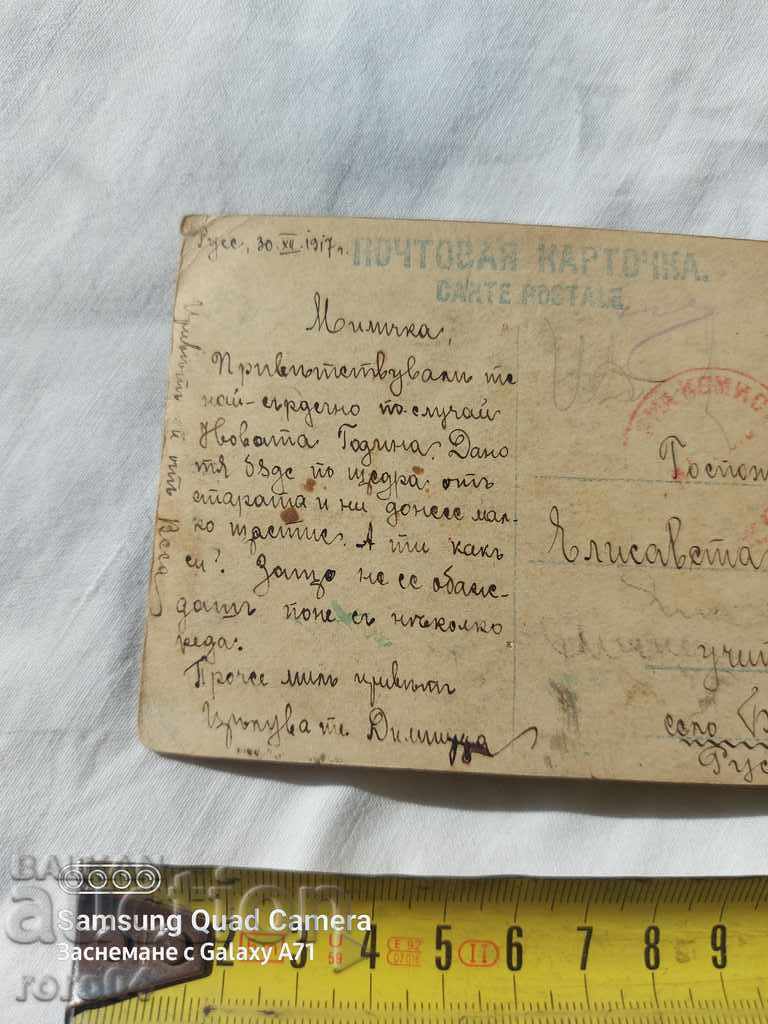 Русе, 30 XII 1917 г.
ПОЧТОВАЯ КАРТОЧКА.
CARTE POSTALE.
Миличка,
Привѣтствувамъ те
най-сърдечно по случай
Новата Година. Дано
тя бѫде по щедра отъ
старата и ни донесе мал-
ко щастие. А ти какъ
си? Защо не се обаж-
дашъ поне съ нѣколко
реда.
Прочее милъ привѣтъ
Цѣлува те Димитра
Привѣтъ и отъ
Госпож
Елисавета
учит
село
Рус
BALKAN
auction
Samsung Quad Camera
Заснемане с Galaxy A71
2 3 4 5 6 7 8 9
E 92
II
59